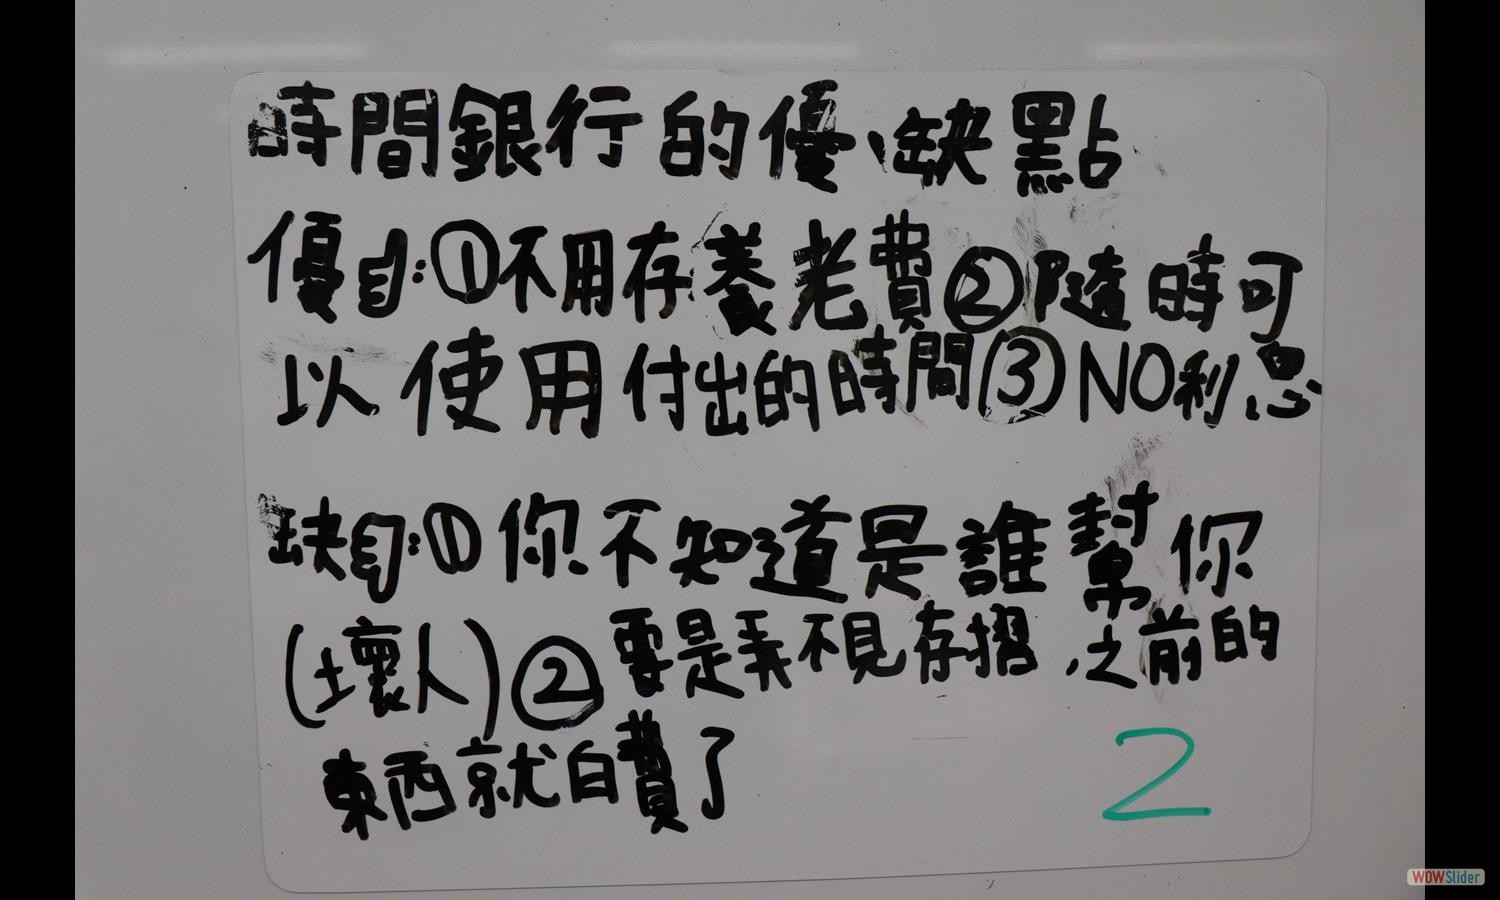 時間銀行的優、缺點
優自:①不用存養老費②隨時可
以使用付出的時間③NO利息
缺自:①你不知道是誰幫你
(壞人)②要是弄不見存摺,之前的
東西就白費了
2
WOWSlider